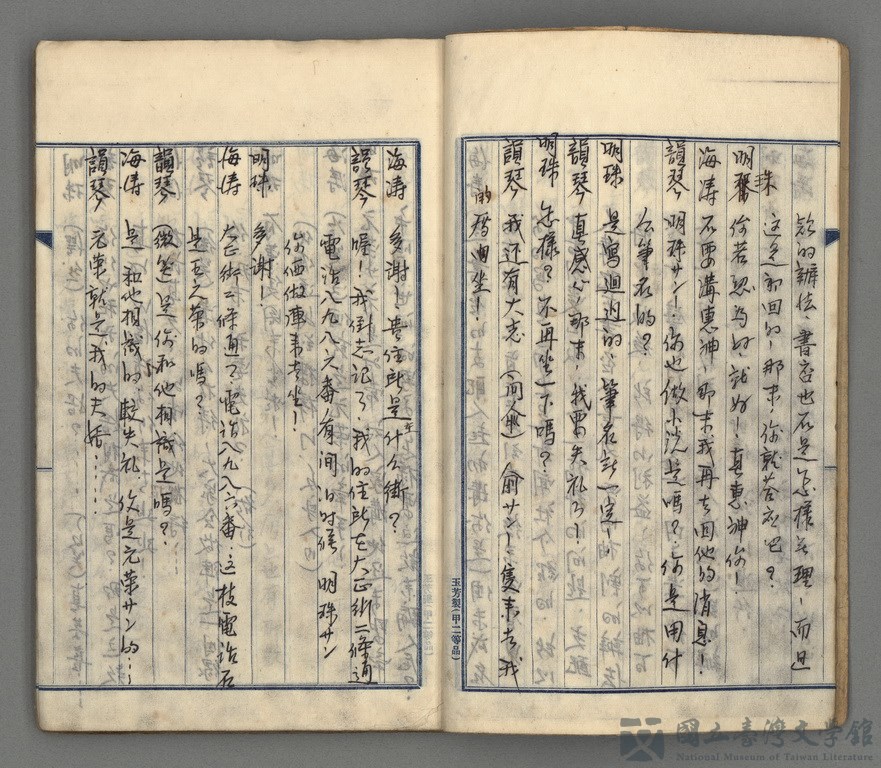 欵的辦法、書店也不是怎樣無理！而且
這是初回的！那末，你就答應吧？
明珠 你若認為好，就好！真惠神你！
海濤 不要溝惠神，那末我再去回他的消息！
韻琴 明珠サン！你也做小説是嗎？你是用什
么筆名的？
明珠 是寫迴過的，筆名許一定！
韻琴 真感心！那末，我要失礼了！
明珠 怎樣？不再坐一下嗎？
韻琴 我还有大志（向兪）！俞サン！隻来去我
的厝内坐！
海濤 多謝！貴住所是什么街？
韻琴 喔！我倒忘記了，我的住所在大正街二條通
電話八九八六番，有閒的时候 明珠サン
你俩做陣來去坐！
明珠 多謝！
海濤 大正街二條通？電話八九八六番？这枝電話不
是王元荣的嗎？
韻琴 （微笑）是，你和他相識是嗎？
海濤 是，和他相識的，較失礼，你是元荣サン的…
韻琴 元荣就是我的夫婿……
玉芳製（甲二等品）
國立臺灣文學館
National Museum of Taiwan Literature